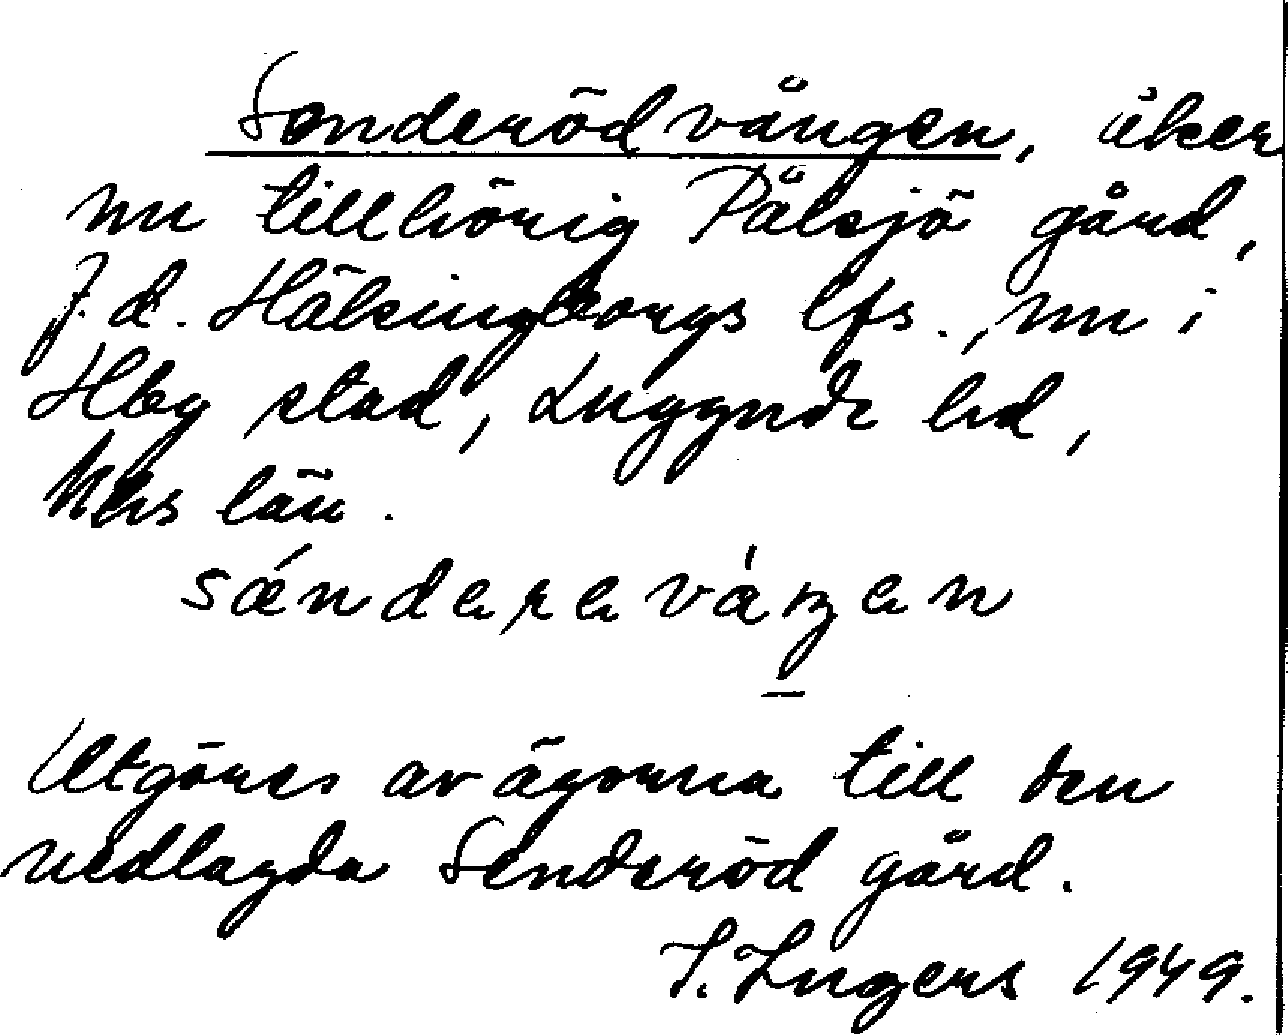 Senderödvången, åker
nu tillhörig Pålsjö gård,
f.d. Hälsingborgs lfs., nu i
Hbg stad, Luggude hd,
Mhs län.
sǽnderevåŋen
Utgöres av ägorna till den
nedlagda Senderöd gård.
I. Ingers 1949.